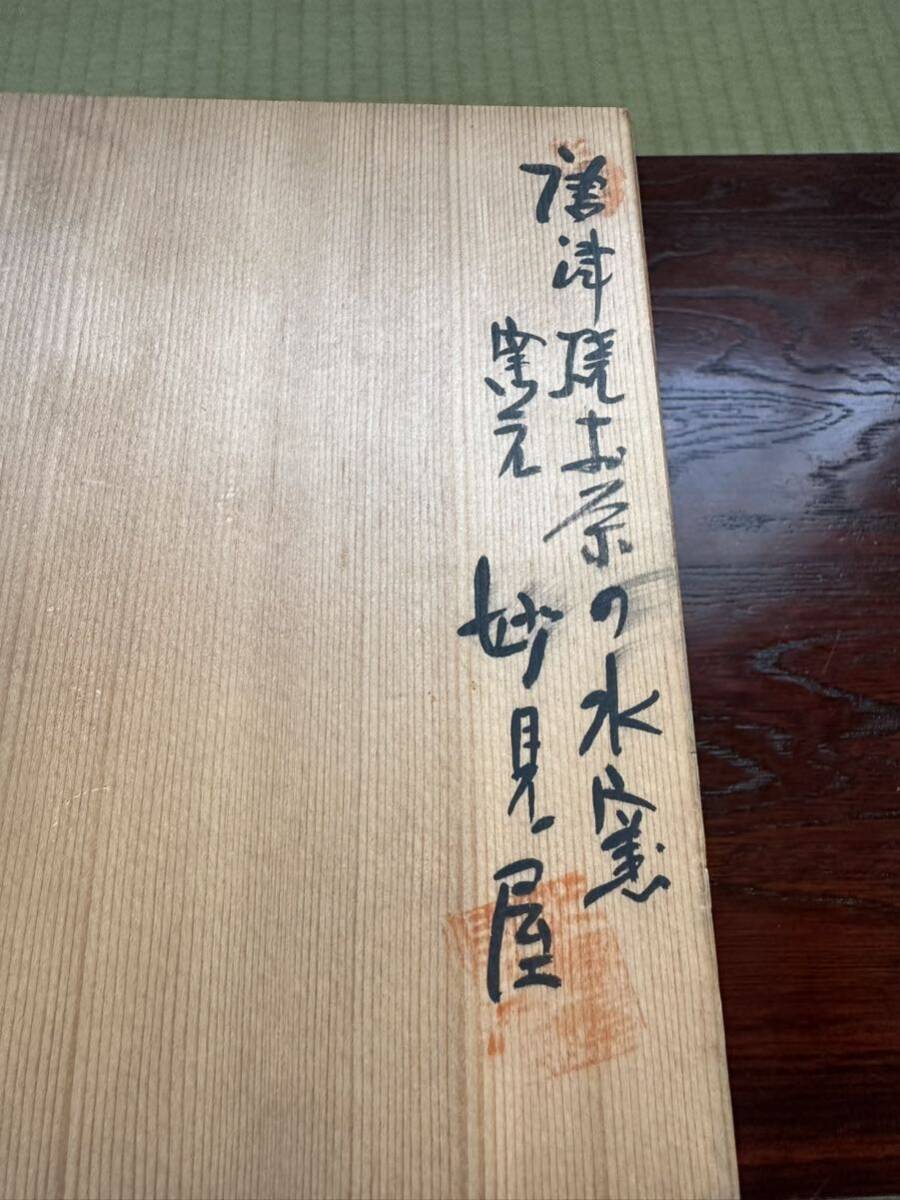 唐津焼お茶の水窯
窯元 妙見屋